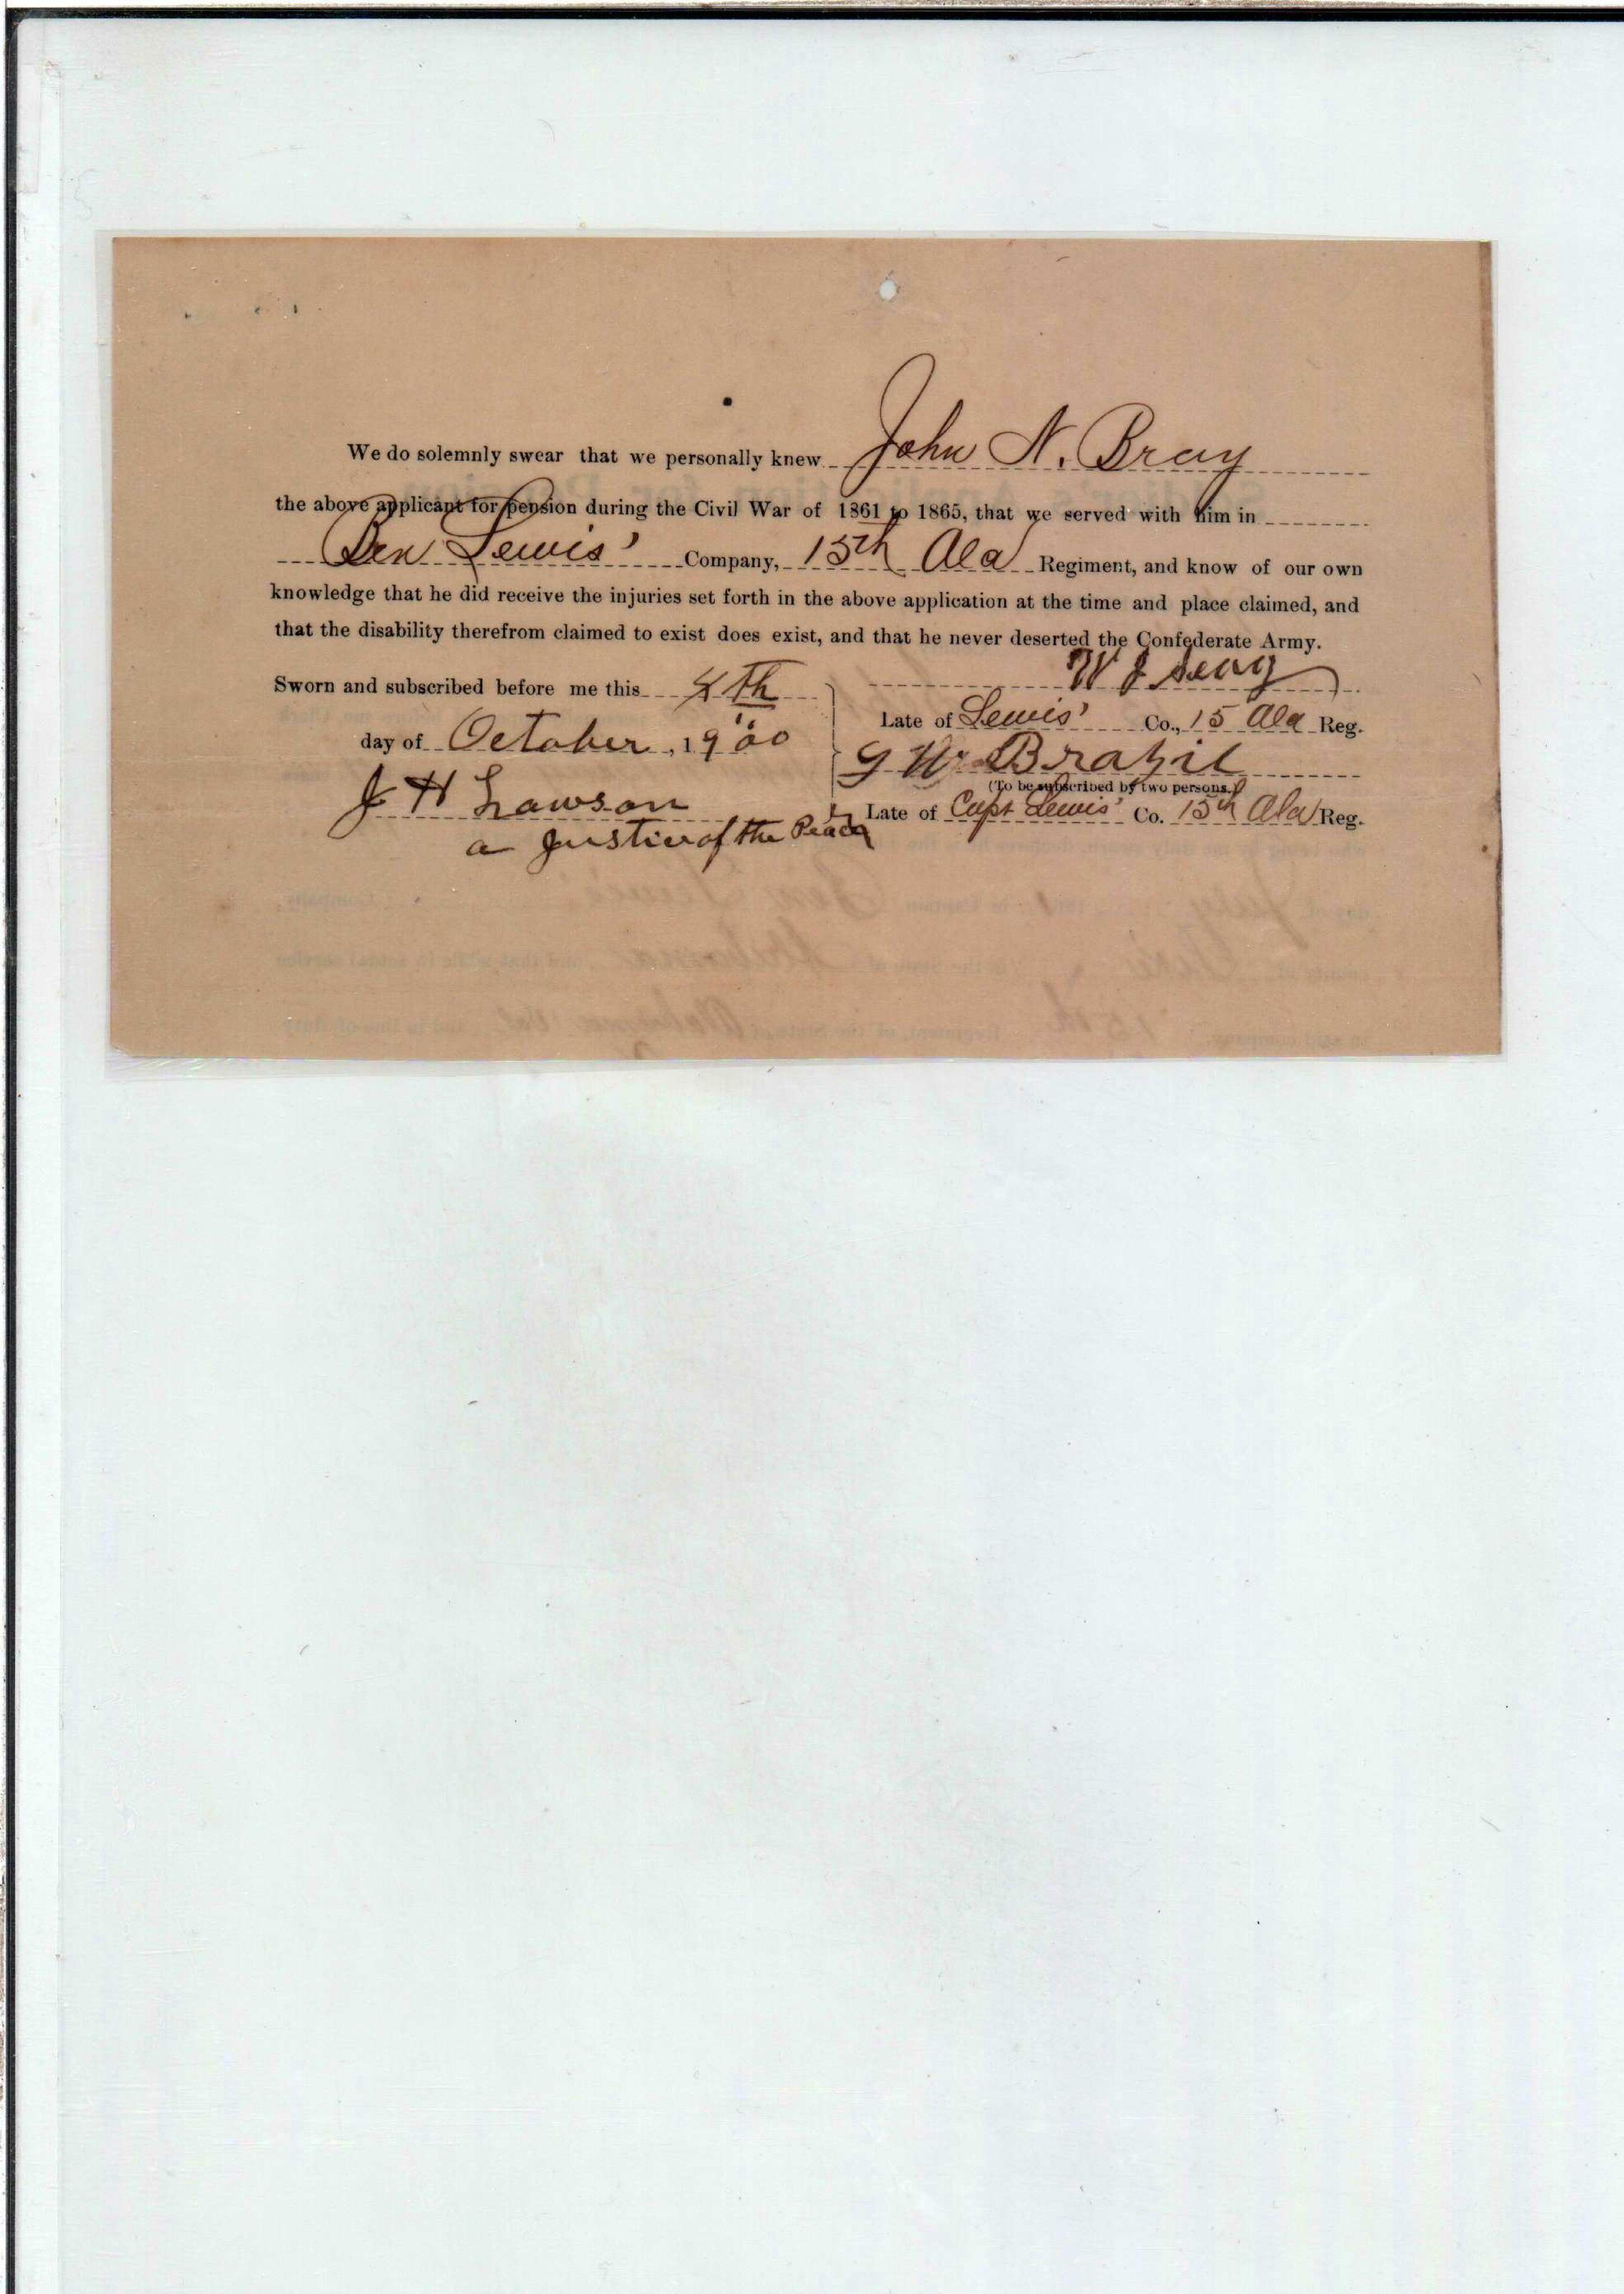 We do solemnly swear that we personally knew John N. Bray
the above applicant for pension during the Civil War of 1861 to 1865, that we served with him in
Ben Lewis' Company, 15th Ala Regiment, and know of our own
knowledge that he did receive the injuries set forth in the above application at the time and place claimed, and
that the disability therefrom claimed to exist does exist, and that he never deserted the Confederate Army.
W J
Sworn and subscribed before me this 4th
Late of Lewis' Co., 15 Ala Reg.
day of October, 1900
G W Brazil
(To be subscribed by two persons.)
J H Lawson
Late of Capt Lewis' Co. 15th Ala Reg.
a Justice of the Peace